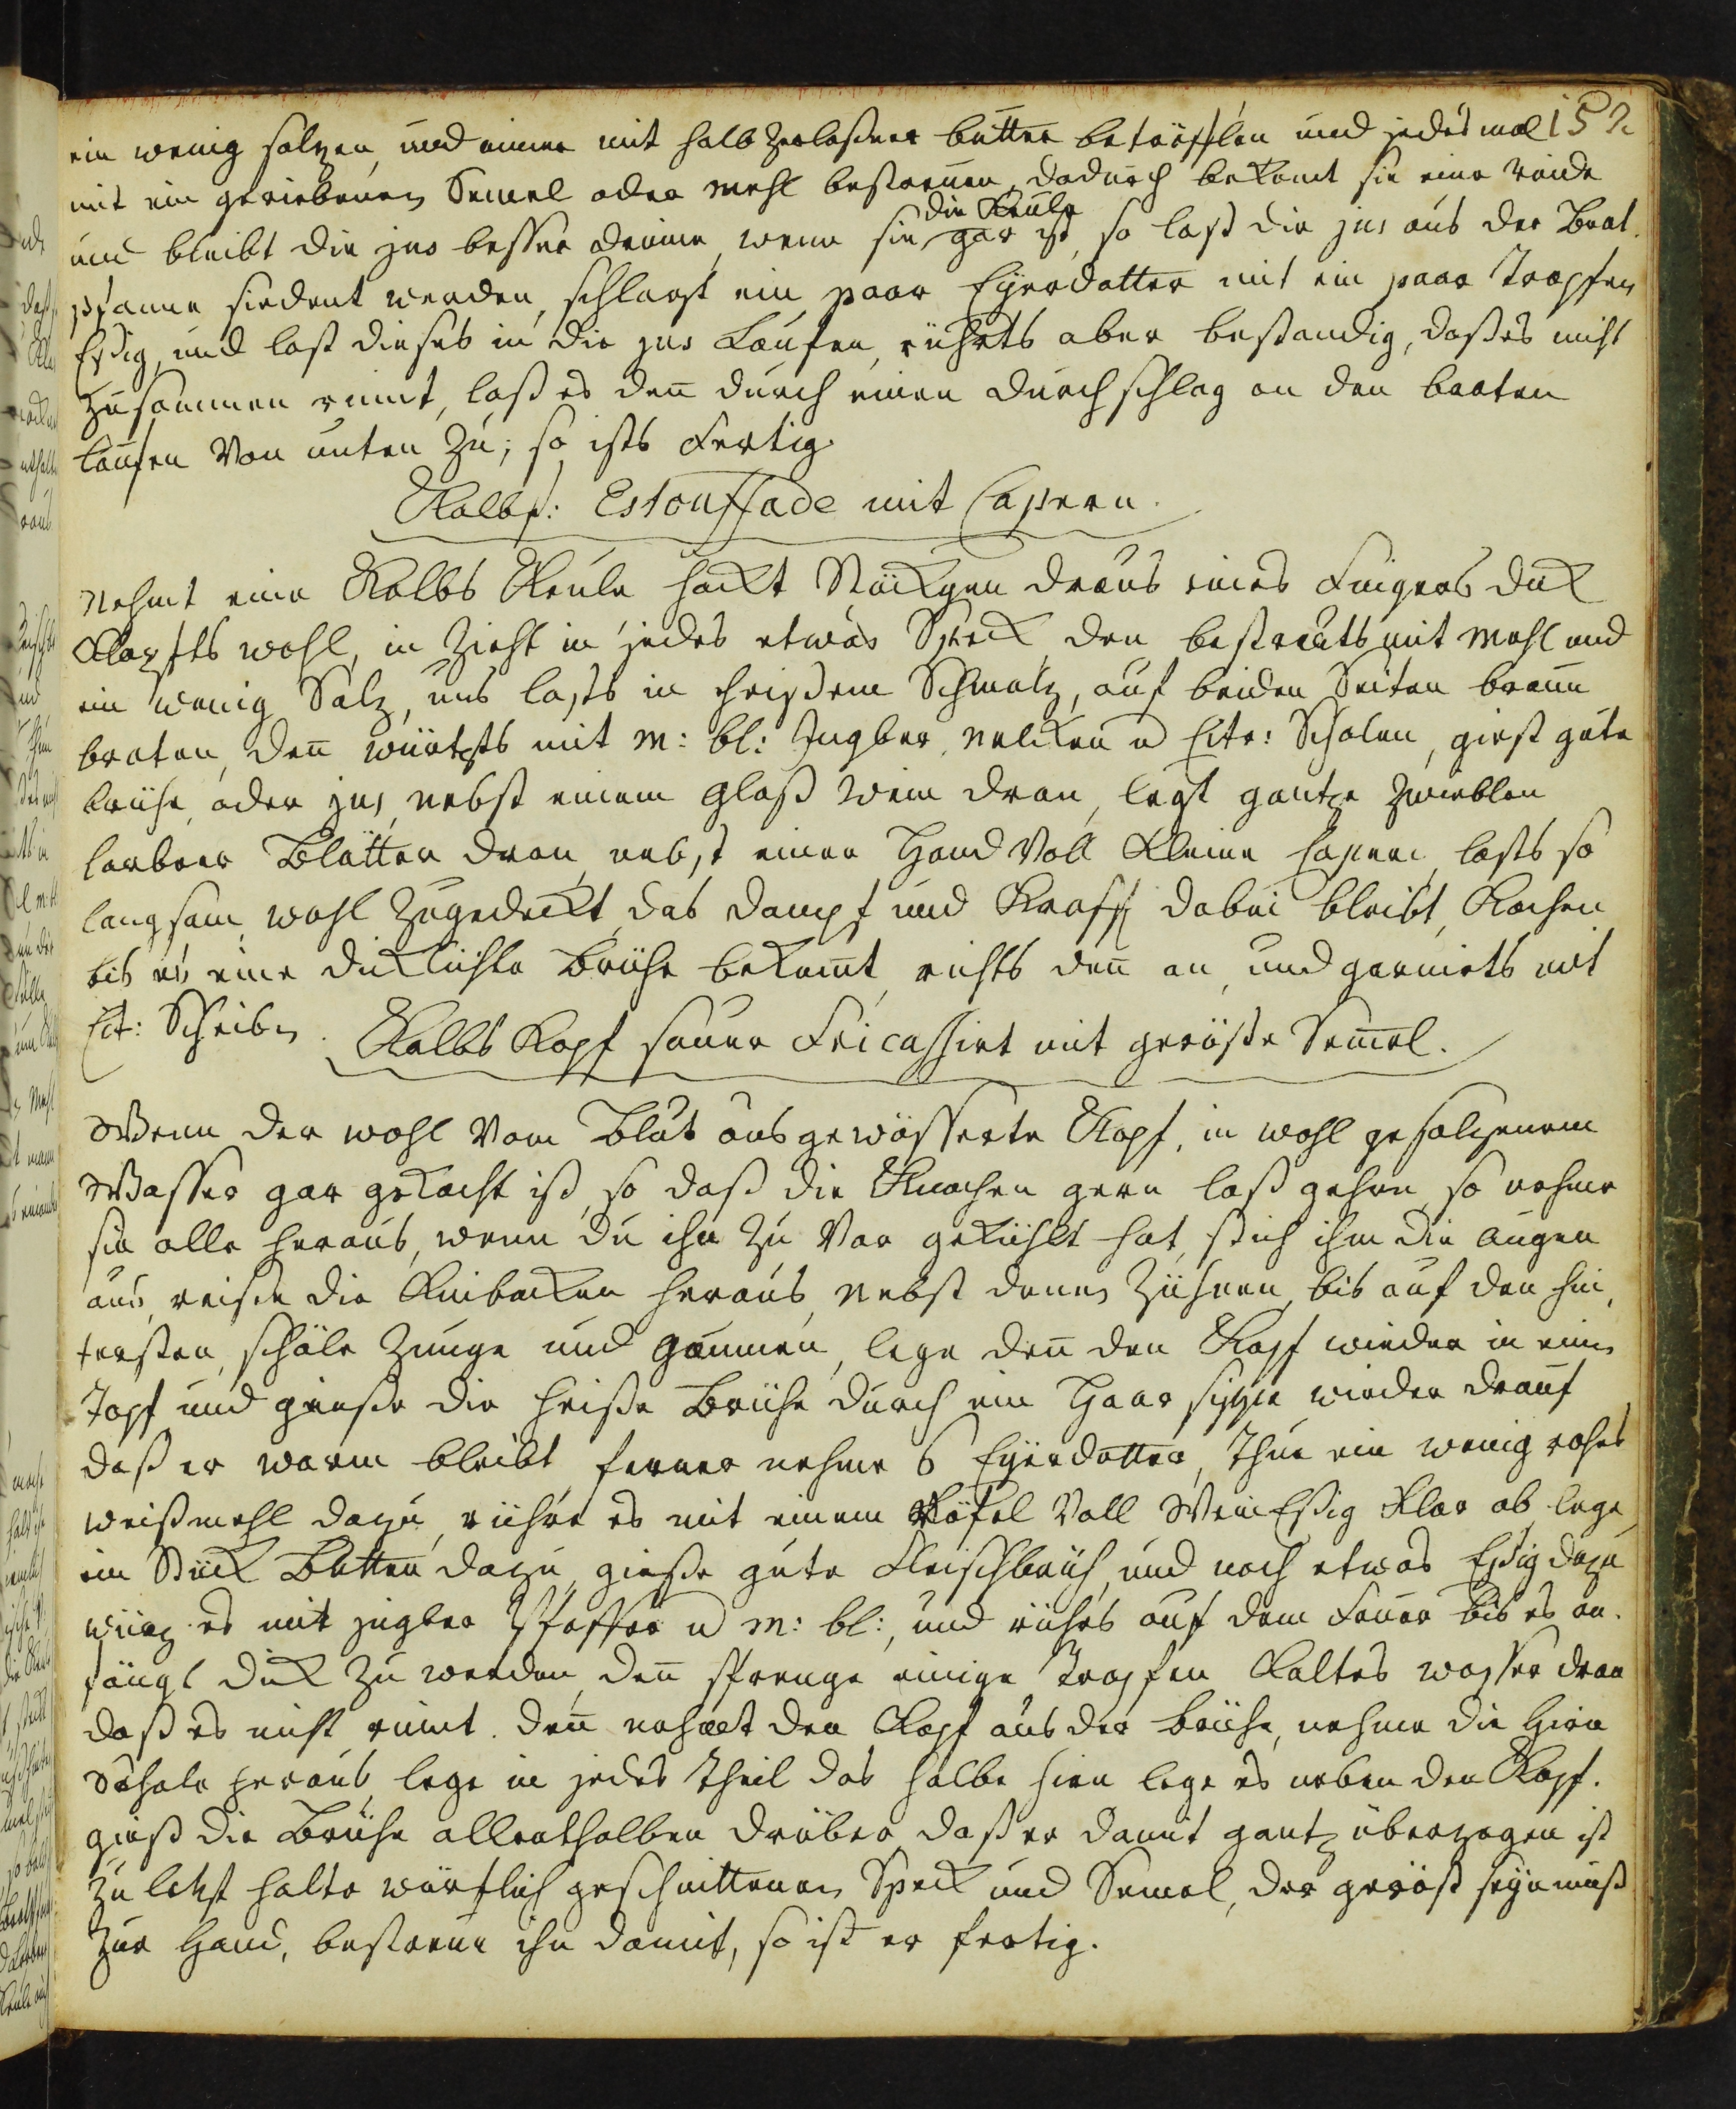 ein wenig salzen, und immer mit halb zerlaßner butter beträufflen und jedes mal 152
mit ein geriebenen Semel oder Mehl bestreuen, dadurch bekomt sie eine rinde
die Keule
und bleibt die jus besser drinne, wenn sie gar ist, so laß die jus aus der Brat
pfanne siedent werden, schlagt ein paar Eyerdotter mit ein paar Tropfen
Eßig, und laß dieses in die jus Laufen, rührts aber bestandig, daß es nicht
zusammen rinnt, laß es deñ durch einen durchschlag an den braten
laufen von unten zu; so ists Fertig.
Kalbs: Estouffade mit Capern.
Nehmt eine Kalbs Keule hackt Stückgen draus eines Fingers dick
Klopfts wohl, in zieht in jedes etwas Speck den bestreuts mit Mehl und
ein wenig Salz, uns lasts in heißem Schmalz, auf beiden Seiten braun
braten, deñ würtzts mit M: bl: Ingber, nelcken u Citr: Schalen, giest gute
brühe, oder jus, nebst einem Glaß Wein dran, legt gantze Zwieblen
lorbeer Blätter dran, nebst einer Hand Voll Kleine Capern, lasts so
langsam, wohl zugedeckt, das dampf und Krafft dabei bleibt, Kochen
bis es eine dicklichte Brühe bekomt, richts deñ an, und garnirts mit
Cit: Scheiben.
Kalbs Kopf sauer Fricassirt mit geröste Semel.
Wenn der wohl vom Blut ausgewässerte Kopf, in wohl gesalzenem
Wasser gar gekocht ist, so daß die Knochen gern laß gehen, so nehme
sie alle heraus, wenn du ihn zu vor gekühlt hat, stich ihm die Augen
aus, reiße die Kinbacken heraus, nebst denen Zähnen, bis auf den hin,
tersten, schäle Zunge und Gaumen, lege deñ den Kopf wieder in einen
Topf und gieße die heiße Brühe durch ein Haar sippe wieder drauf
daß er warm bleibt, ferner nehme 6 Eyerdotter, Thue ein wenig rohes
weißmehl dazu, rühre es mit einem Löfel Voll Wein Eßig Klar ab, lege
ein Stück Butter dazu, gieße gute Fleischbrüh, und noch etwas Eßig dazu
würz es mit jngber Pfeffer u M: bl:, und rührs auf dem Feuer bis es an.
fängt dick zu werden, deñ sprenge einige Tropfen Kaltes wasser dran
daß es nicht rinnt. deñ nehmt den Kopf aus der brühe, nehme die Hirn
Schale heraus, lege in jedes Theil das halbe hirn lege es neben den Kopf.
gieß die Brühe allenthalben drüber daß er damit gantz überzogen ist
zu letzt halte würflich geschnittenen Speck und Semel, der geröst seyn muß
zur Hand, bestreue ihn damit, so ist er fertig.